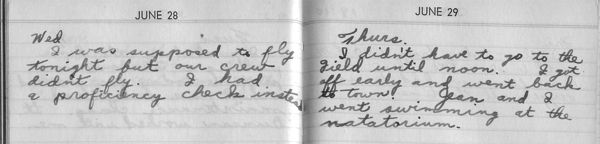 JUNE 28
Wed
I was supposed to fly
tonight but our crew
didnt fly. I had
a proficiency check instead
JUNE 29
Thurs.
I didn't have to go to the
field until noon. I got
off early and went back
to town. Jean and I
went swimming at the
natatorium.